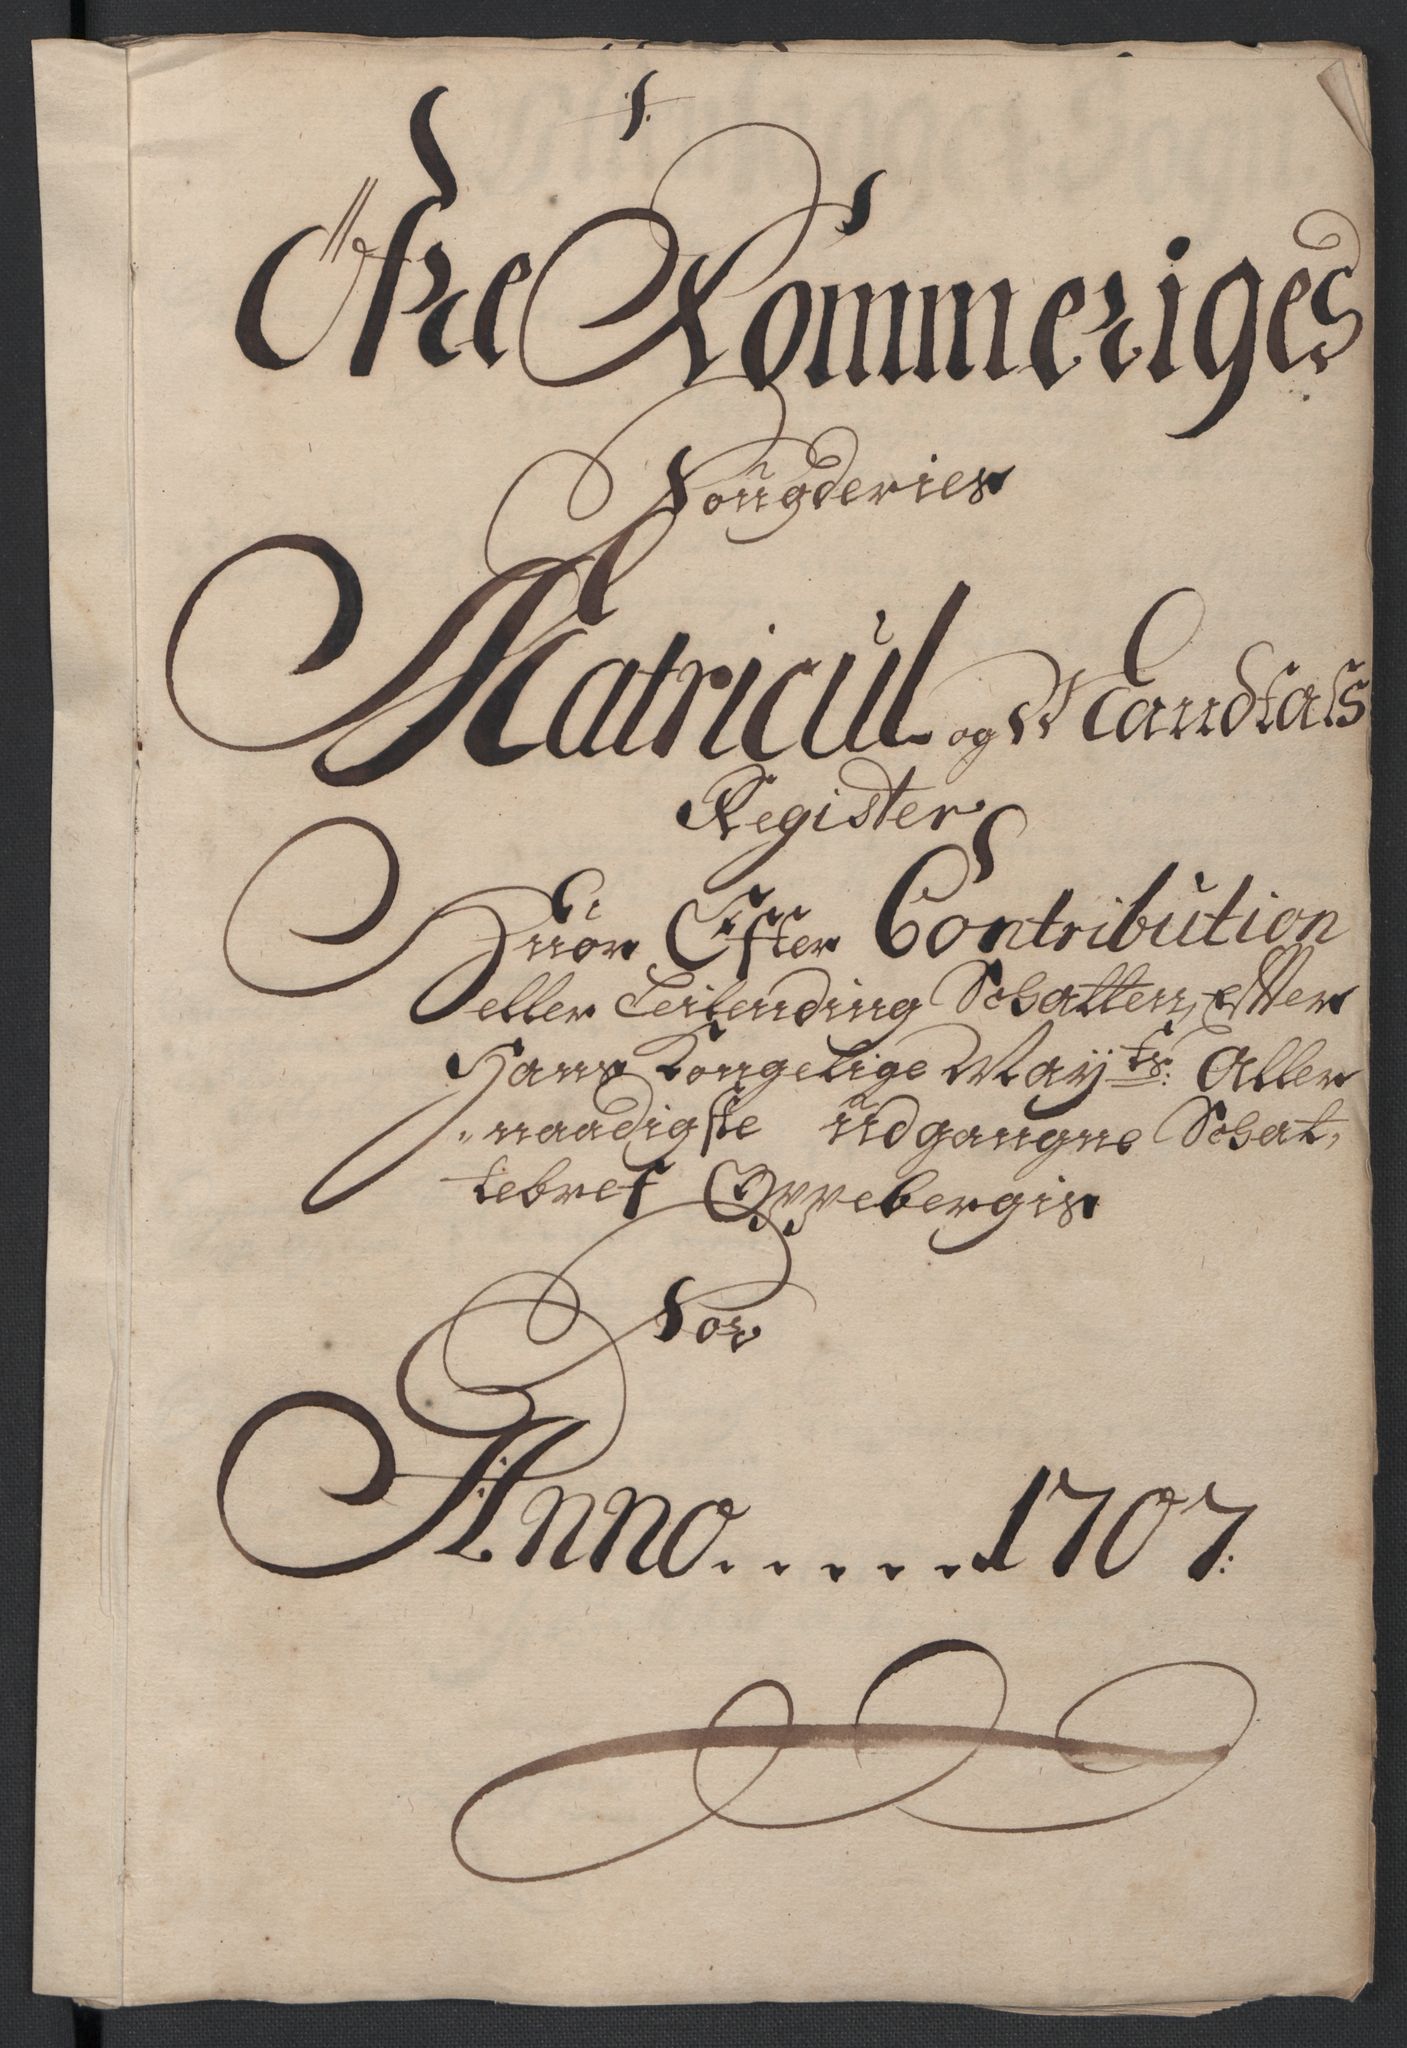 Öfre Rommeriges
Fougderies
Matricul og Mandtals
Register
Huor Efter Contribution
eller Leilending Schatten, efter
Hans Kongelige Mayts: Aller
naadigste udgangne Schat,
tebref Oppebergis
For
Anno.....1707.